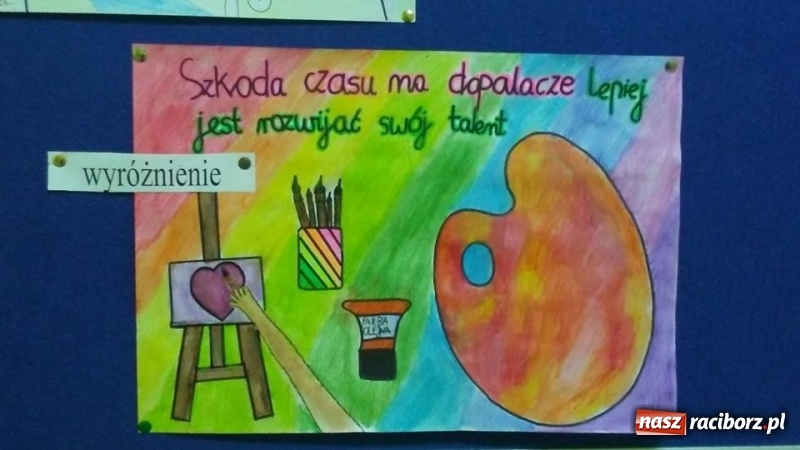 Szkoda czasu na dopalacze lepiej
jest rozwijać swój talent
wyróżnienie
FARBA
OLEJNA
nasz raciborz.pl